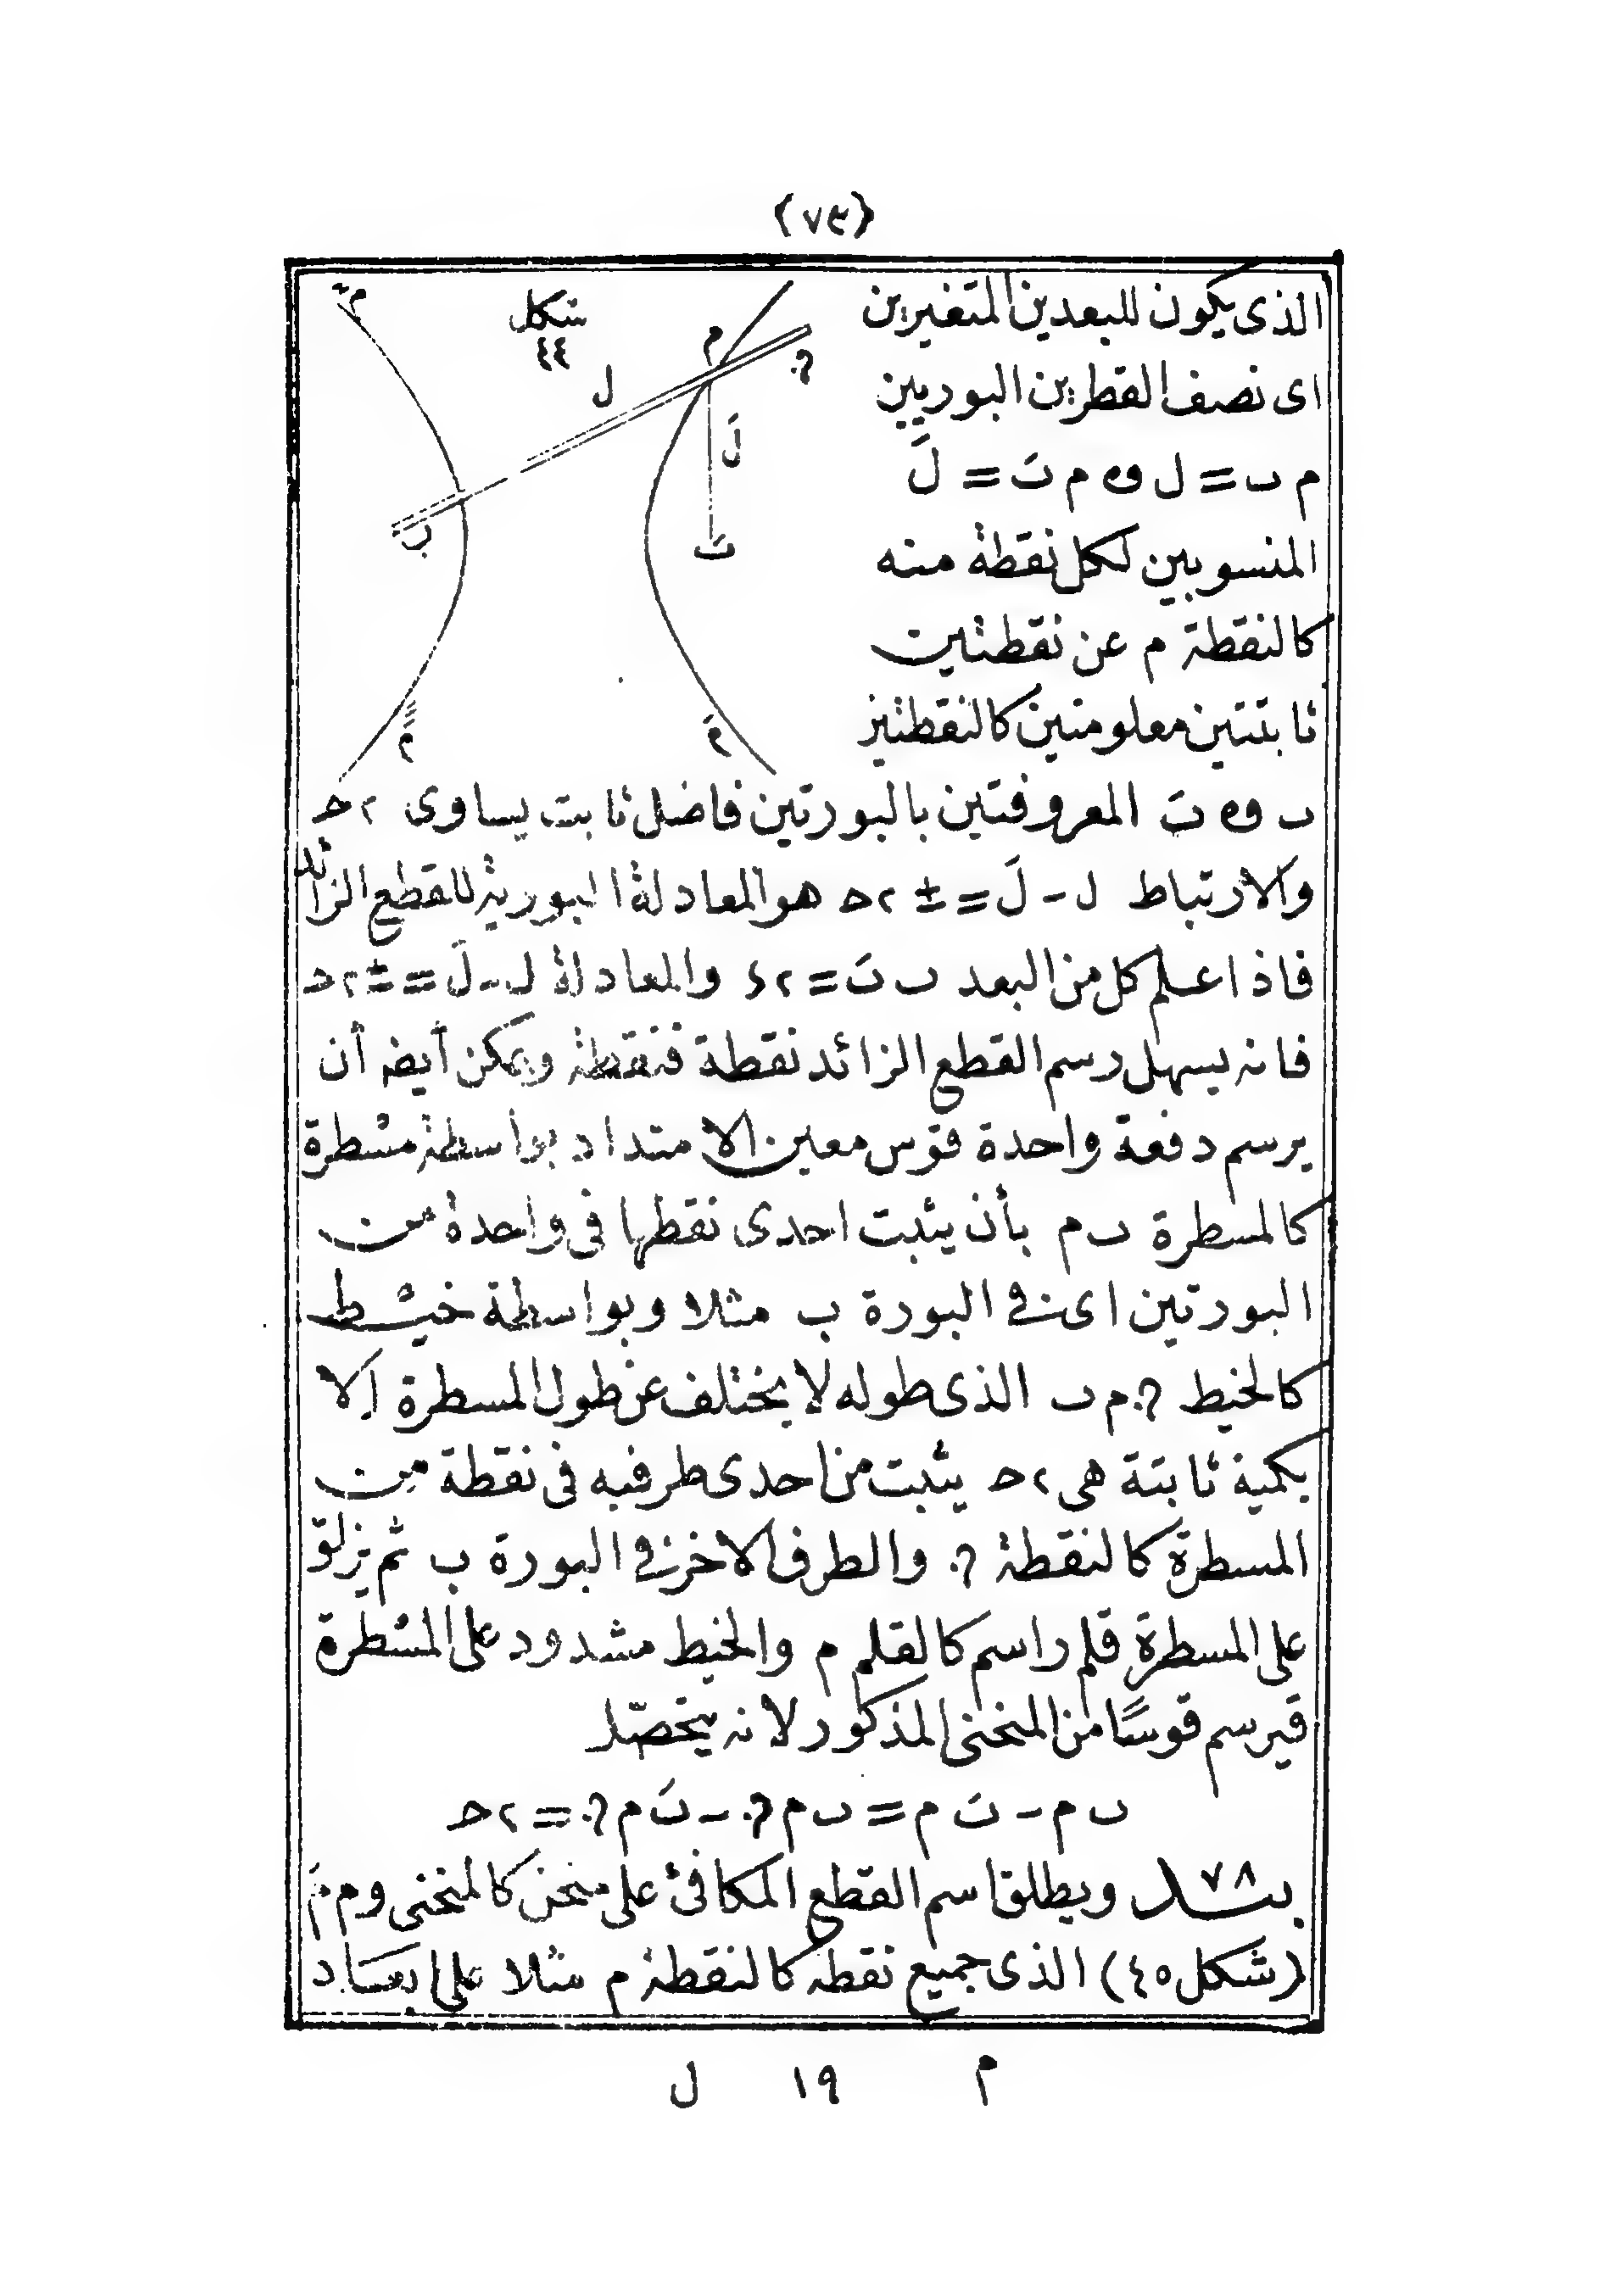 (٧٣)
الذى يكون للبعدين المتغيرين
اى نصف القطرين البوريين
م ب = ل و م بَ = لَ
المنسوبين لكل نقطة منه
كالنقطة م عن نقطتين
ثابتتين معلومتين كالنقطتين
شكل
٤٤
م
ل
لَ
ب
بَ
مَ
ب و بَ المعروفتين بالبورتين فاضل ثابت يساوى ٢ح
والارتباط ل - لَ = ± ٢ح هو المعادلة البورية للقطع الزائد
فاذا علم كل من البعد ب بَ = ٢ء والمعادلة ل - لَ = ± ٢ح
فانه يسهل رسم القطع الزائد نقطة فنقطة ويمكن أيضه أن
يرسم دفعة واحدة قوس معين الامتداد بواسطة مسطرة
كالمسطرة ب م بأن يثبت احدى نقطها فى واحدة من
البورتين اى فى البورة ب مثلا وبواسطة خيط
كالخيط م ب الذى طوله لا يختلف عن طول المسطرة الا
بكمية ثابتة هى ٢ح يثبت من احدى طرفيه فى نقطة من
المسطرة كالنقطة والطرف الاخر فى البورة ب ثم يزلق
على المسطرة قلم راسم كالقلم م والخيط مشدود على المسطرة
فيرسم قوسًا من المنحنى المذكور لانه يتحصّل
ب م - بَ م = ب م - بَ م = ٢ح
٧٨ بند ويطلق اسم القطع المكافئ على منحن كالمنحنى و م مَ
(شكل ٤٥) الذى جميع نقطه كالنقطة م مثلا على ابعاد
م ١٩ ل